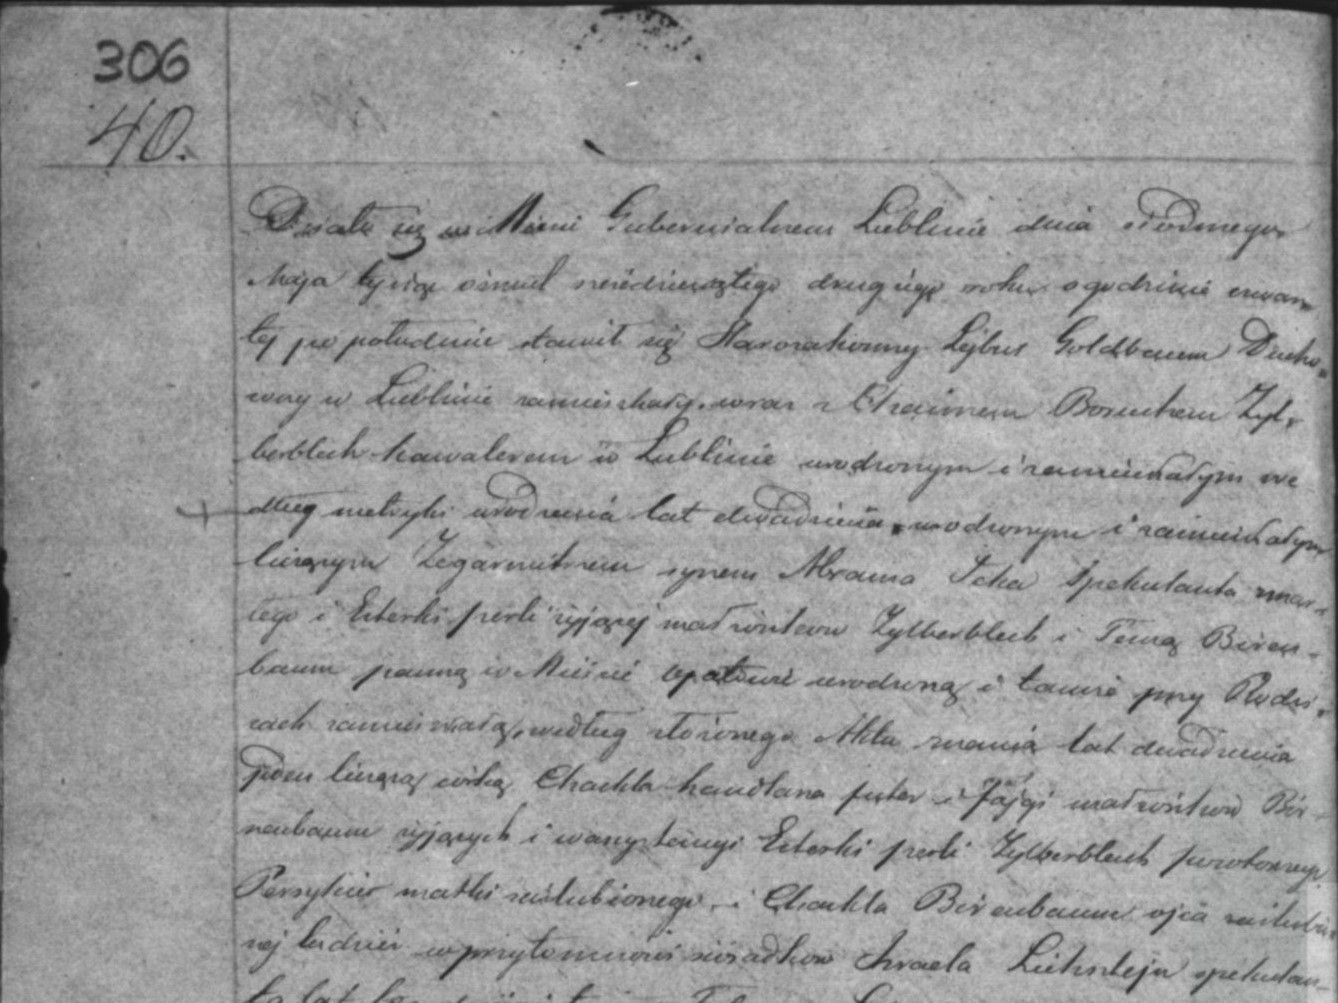 306
40.
Działo się w Mieście Gubernialnem Lublinie dnia siodmego
Maja tysiąc osmset sześdziesiątego drugiego roku o godzinie czwar
tej po południu stawił się Starozakonny Lejbus Goldbaum Ducho„
wny w Lublinie zamieszkały, wraz z Chaimem Boruchem Zyl„
berblech kawalerem w Lublinie urodzonym i zamieszkałym we
dług metryki urodzenia lat dwadzieścia urodzonym i zamieszkałym
liczącym Zegarmistrzem synem Abrama Icka Spekulanta zmar„
łego i Esterki perli żyjącej małżonków Zylberblech i Temą Biren„
baum panną w Mieście Opatowie urodzoną i tamże przy Rodzi„
cach zamieszkałą, według złożonego Aktu znania lat dwadzieścia
jeden liczącą córką Chackla handlarza futer i Fajgi małżonków Bir
nenbaum żyjących i
Esterki perli Zylberblech
matki zaślubionego, i Chackla Birenbaum ojca zaślubio„
nej tudzież w przytomności świadków Izraela Lichsztejn spekulan„
ta lat